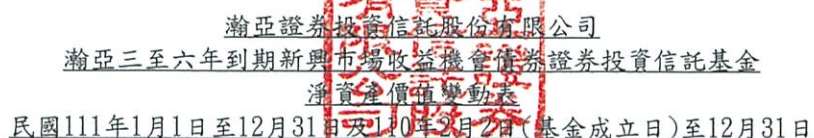 瀚亞證券投資信託股份有限公司
瀚亞三至六年到期新興市場收益機會債券證券投資信託基金
淨資產價值變動表
民國111年1月1日至12月31日及110年2月2日(基金成立日)至12月31日